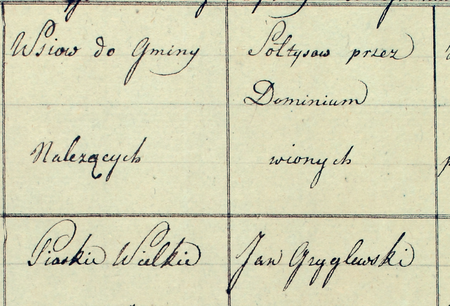 Wsiow do Gminy
Należących
Sołtysow przez
Dominium
wionych
Piaskie Wielkie
Jan Gryglewski